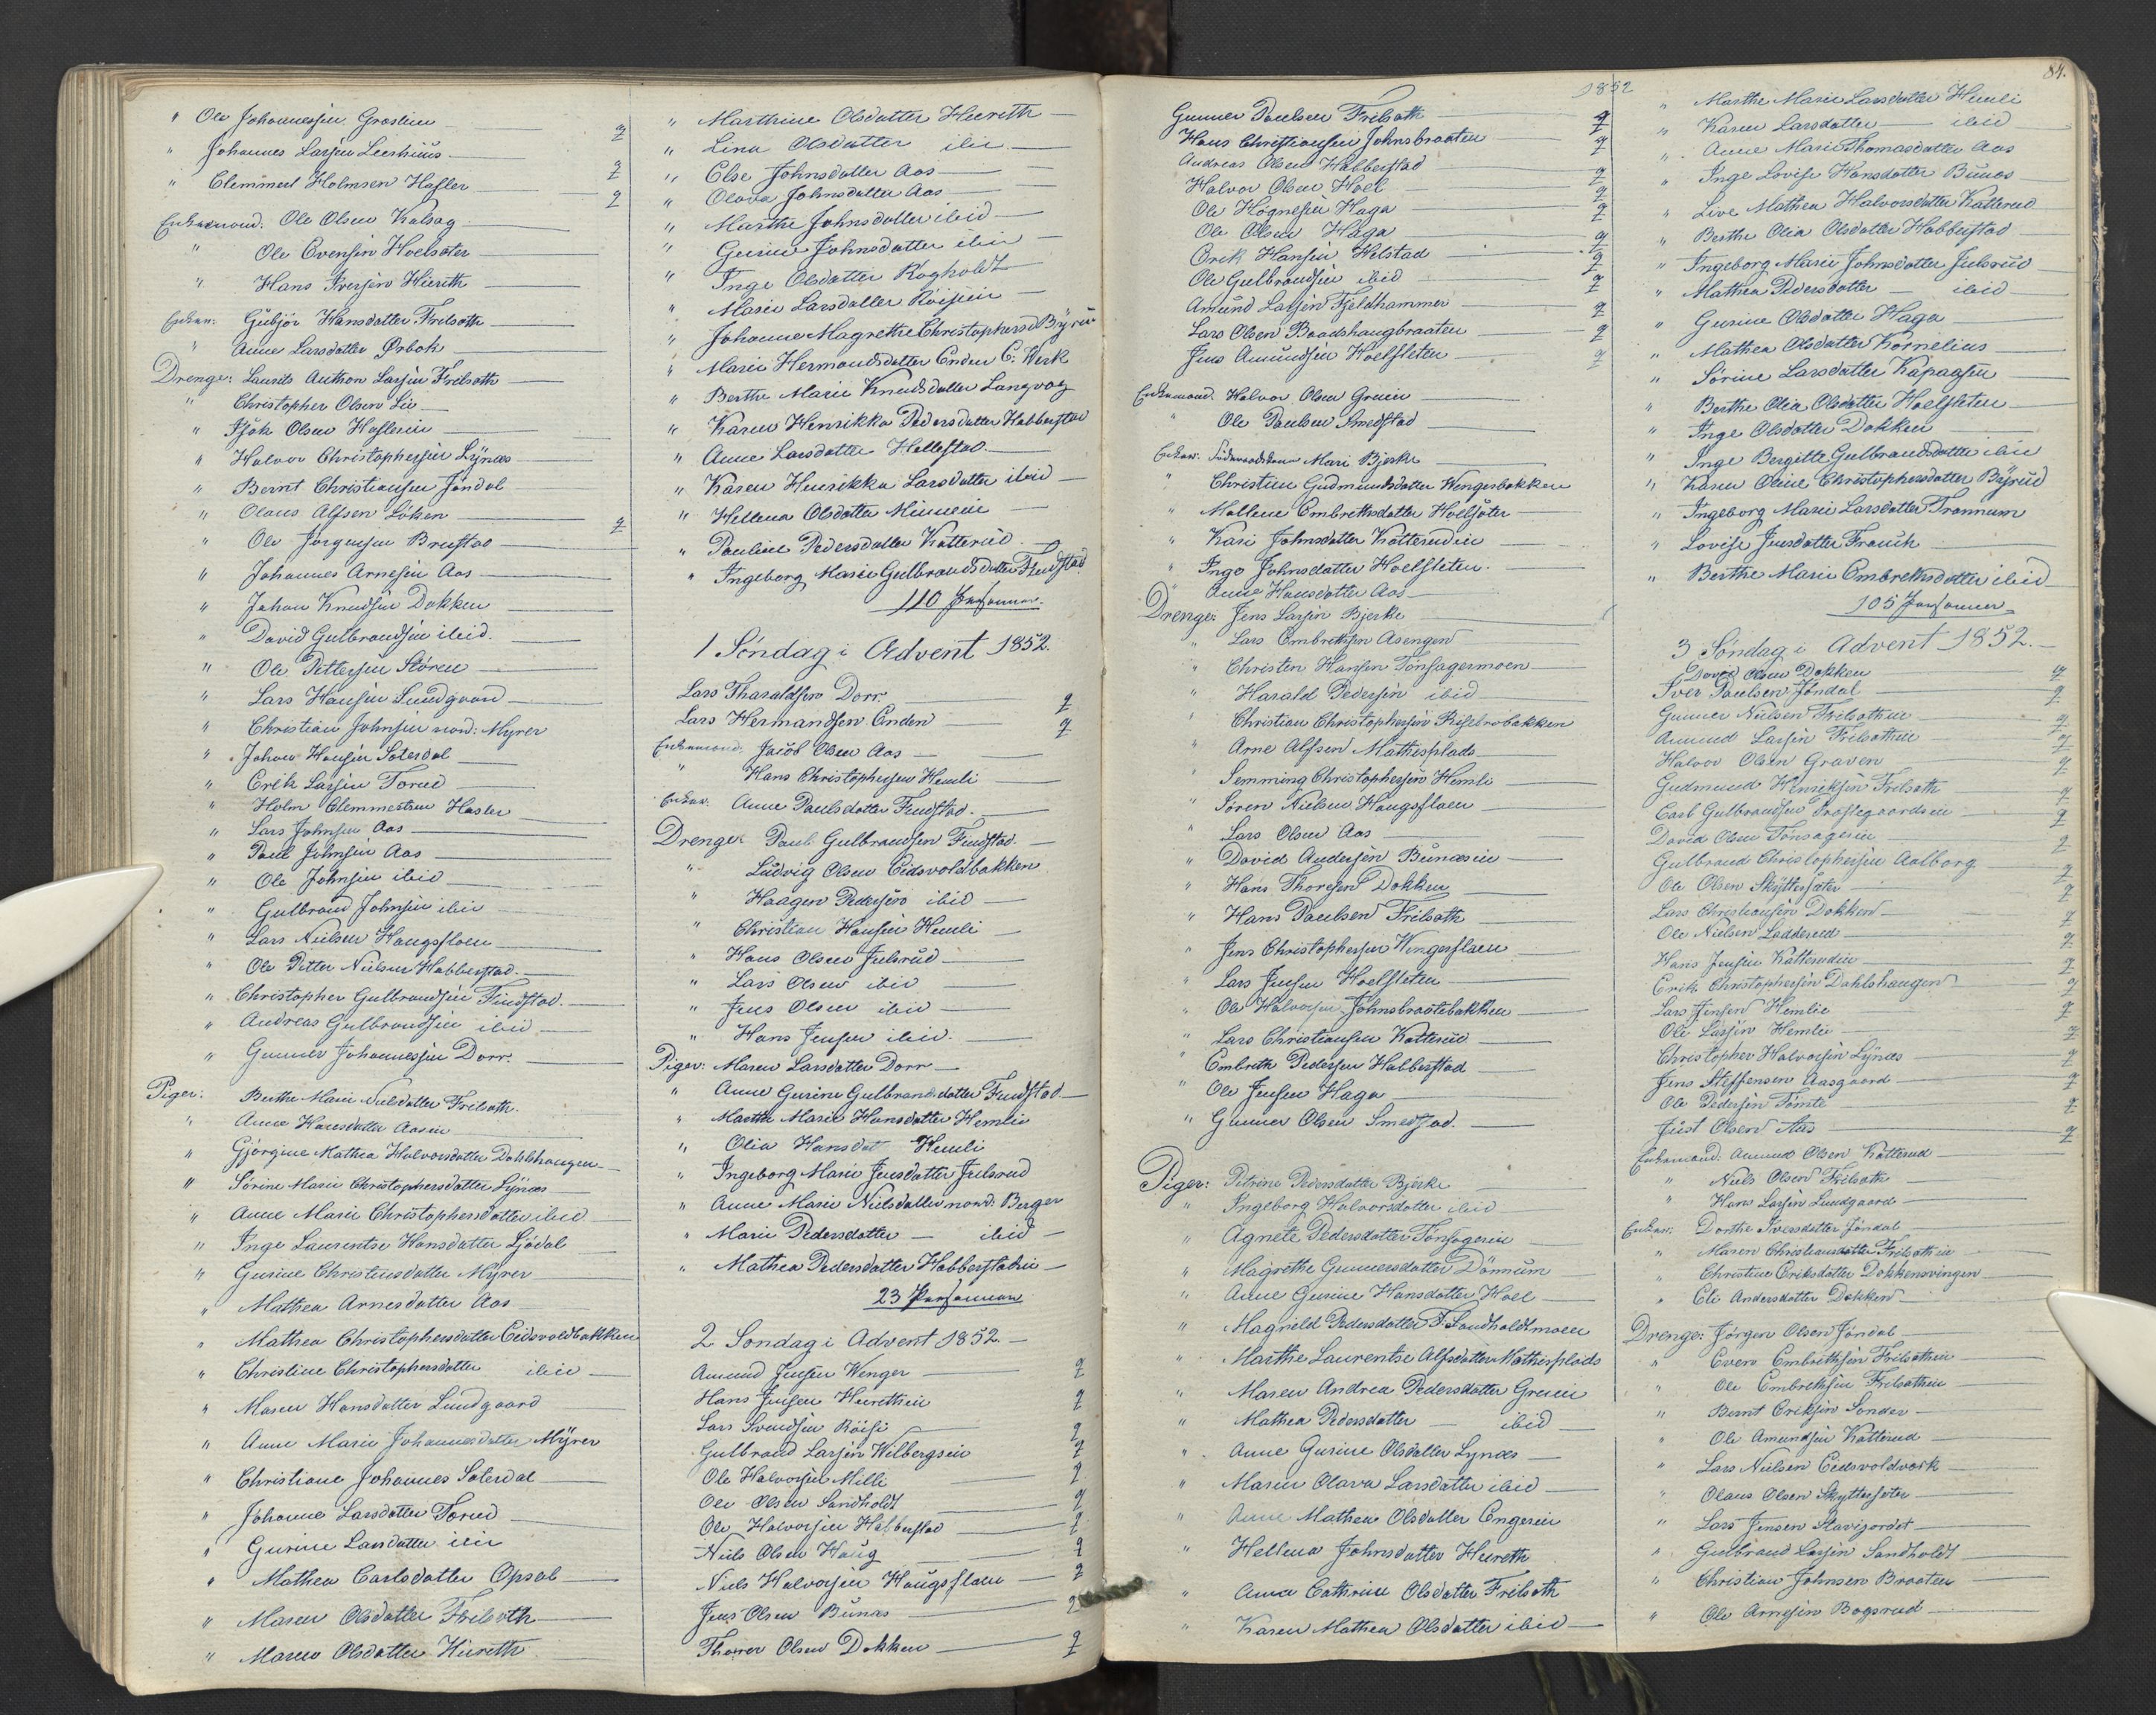 " Ole Johannessen Graslien — q
" Johannes Larsen Leerhuus — q
" Clemmert Holmsen Hasler — q
Enkemand: Ole Olsen Kalsag
" Ole Evensen Hoelsæter
" Hans Iversen Hureth
Enken: Gubjør Hansdatter Frilseth
" Anne Larsdatter Ørbæk
Drenge: Laurits Anthon Larsen Frilseth
" Christopher Olsen Lie
" Olsen Haslerein
" Halvor Christophersen Lÿnæs
" Bernt Christiansen Jøndal
" Olaus Alfsen Løken
" Ole Jørgensen Brustad — q
" Johannes Arnesen Aas
" Johan Knudsen Dokken
" David Gulbrandsen ibid.
" Ole Pettersen Støren
" Lars Hansen Lundgaard
" Christian Johnsen nord: Myrer
" Johan Hansen Soterdal
" Erik Larsen Torud
" Holm Clemmertsen Hasler
" Lars Johnsen Aas
" Paul Johnsen Aas
" Ole Johnsen ibid
" Gulbrand Johnsen ibid
" Lars Nielsen Haugsfloen
" Ole Petter Nielsen Habberstad.
" Christopher Gulbrandsen Findstad.
" Andreas Gulbrandsen ibid
" Gunner Johannessen Dorr.
Piger: Berthe Marie Nielsdatter Frilseth.
" Anne Hansdatter Aasen
" Gjørgine Mathea Halvorsdatter Dahlshaugen
" Sørine Marie Christophersdatter Lÿnæs
" Anne Marie Christophersdatter ibid
" Inge Laurentse Hansdatter Ljødal
" Gurine Christensdatter Mÿrer
" Mathea Arnesdatter Aas
" Mathea Christophersdatter Eidsvoldbakken
" Christine Christophersdatter ibid
" Maren Hansdatter Lundgaard
" Anne Marie Johannesdatter Mÿrer
" Christiane Johannes Soterdal
" Johanne Larsdatter Torud
" Gurine Larsdatter ibid
" Mathea Carlsdatter Opsal
" Maren Olsdatter Frilseth
" Maren Olsdatter Hureth
" Marthine Olsdatter Hureth
" Lina Olsdatter ibid.
" Else Johnsdatter Aas
" Olava Johnsdatter Aas
" Marthe Johnsdatter ibid
" Gurine Johnsdatter ibid
" Inge Olsdatter Rogholdt
" Marie Larsdatter Röisein
" Johanne Magrethe Christophersd Bÿrud
" Marie Hermandsdatter Enden E: Værk
" Berthe Marie Knudsdatter Langvag
" Karen Henrikka Pedersdatter Habberstad
" Anne Larsdatter Hellestad.
" Karen Henrikka Larsdatter ibid
" Hellena Olsdatter Minnein
" Pauline Pedersdatter Katterud
" Ingeborg Marie Gulbrandsdatter Findstad
110 Personer.
1 Söndag i Advent 1852.
Lars Tharaldsen Dorr — q
Lars Hermandsen Enden — q
Enkemand: Jacob Olsen Aas
" Hans Christophersen Hemli
Enken: Anne Paulsdatter Findstad.
Drenge: Paul Gulbrandsen Findstad.
" Ludvig Olsen Eidsvoldbakken
" Haagen Pedersen ibid
" Christian Hansen Hemli
" Hans Olsen Julsrud
" Lars Olsen ibid
" Jens Olsen ibid
" Hans Jensen ibid.
Piger: Maren Larsdatter Dorr
" Anne Gurine Gulbrandsdatter Findstad
" Marthe Marie Hansdatter Hemlie
" Olia Hansdat Hemli
" Ingeborg Marie Jensdatter Julsrud
" Anne Marie Nielsdatter nord: Berger
" Marie Pedersdatter — ibid
" Mathea Pedersdatter Habberstadeie
23 Personer
2 Söndag i Advent 1852
Amund Jensen Wenger — q
Hans Jensen Hurethein — q
Lars Svendsen Röise — q
Gulbrand Larsen Wilbergsein — q
Ole Halvorsen Milli — q
Ole Olsen Sandholdt — q
Ole Halvorsen Habberstad — q
Niels Olsen Haug — q
Niels Halvorsen Haugsfloen — q
Jens Olsen Bunæs — q
Thorer Olsen Dokken — q
1852
Gunner Paulsen Frilseth — q
Hans Christiansen Johnsbraaten — q
Andreas Olsen Habberstad — q
Halvor Olsen Hoel — q
Ole Høgnesen Haga — q
Ole Olsen Haga — q
Erik Hansen Helstad — q
Ole Gulbrandsen ibid — q
Amund Larsen Fjeldhammer — q
Lars Olsen Baadshaugbraaten — q
Jens Amundsen Hoelsleten — q
Enkemand: Halvor Olsen Gruein
" Ole Paulsen Smedstad
Enken: Mari Bjerke
" Christine Gudmundsdatter Wengerbakken
" Mallene Embrethsdatter Hoelsæter
" Kari Johnsdatter Katterudein
" Inge Johnsdatter Hoelsleten.
" Anne Hansdatter Aas
Drenge: Jens Larsen Bjerke
" Lars Embrethsen Asengen
" Christen Hansen Tonsagermoen
" Harald Pedersen ibid
" Christian Christophersen Risebrobakken
" Arne Alfsen Mathisplads
" Semming Christophersen Hemli
" Søren Nielsen Haugsfloen
" Lars Olsen Aas
" David Andersen Bunæsein
" Hans Thoresen Dokken
" Hans Paulsen Frilseth
" Jens Christophersen Wengersflaen
" Lars Jensen Hoelsleten
" Ole Halvorsen Johnsbraatebakken
" Lars Christiansen Katterud
" Embreth Pedersen Habberstad
" Ole Jensen Haga
" Gunner Olsen Smedstad.
Piger: Petrine Pedersdatter Bjerke
" Ingeborg Halvorsdatter ibid
" Agnete Pedersdatter Tonsagerein
" Magrethe Gunnersdatter Dönnum
" Anne Gurine Hansdatter Hoel
" Magnild Pedersdatter Sandholdtmoen
" Marthe Laurentse Alfsdatter Mathisplads
" Maren Andrea Pedersdatter Gruein
" Mathea Pedersdatter — ibid
" Anne Gurine Olsdatter Lynæs
" Maren Olava Larsdatter ibid
" Anne Mathea Olsdatter Engerein
" Hellena Johnsdatter Hureth
" Anne Cathrine Olsdatter Frilseth
" Karen Mathea Olsdatter ibid
84.
" Marthe Marie Larsdatter Hemli
" Karen Larsdatter — ibid
" Anne Marie Thomasdatter Aas
" Inge Lovise Hansdatter Bunæs
" Live Mathea Halvorsdatter Katterud
" Berthe Olia Olsdatter Habberstad
" Ingeborg Marie Johnsdatter Julsrud
" Mathea Pedersdatter — ibid
" Gurine Olsdatter Haga
" Mathea Olsdatter Kornelius
" Sörine Larsdatter Kapaasen
" Berthe Olia Olsdatter Hoelsleten
" Inge Olsdatter Dokken
" Inge Bergitte Gulbrandsdatter ibid
" Karen Oline Christophersdatter Bÿrud
" Ingeborg Marie Larsdatter Trannum
" Lovise Jensdatter Frauch
" Berthe Marie Embrethsdatter ibid
105 Personer
3 Söndag i Advent 1852.
David Olsen Dokken — q
Iver Paulsen Jöndal — q
Gunner Nielsen Frilsethein — q
Amund Larsen Frilsethein — q
Halvor Olsen Graven — q
Gudmund Henriksen Frilseth — q
Carl Gulbrandsen Præstegaardsein — q
David Olsen Tonsagerein — q
Gulbrand Christophersen Aalborg — q
Ole Olsen Skÿttersæter — q
Lars Christiansen Dokken — q
Ole Nielsen Ladderud — q
Hans Jensen Katterudein — q
Erik Christophersen Dahlshaugen — q
Lars Jensen Hemlie — q
Ole Larsen Hemlie — q
Christopher Halvorsen Lÿnæs — q
Jens Steffensen Aasgaard — q
Ole Pedersen Tömte — q
Just Olsen Aas — q
Enkemand: Amund Olsen Katterud
" Niels Olsen Frilseth
" Hans Larsen Lundgaard
Enken: Dorthe Iversdatter Jöndal
" Maren Christiansdatter Frilsethein
" Christine Eriksdatter Dokkensvingen
" Eli Andersdatter Dokken
Drenge: Jörgen Olsen Jöndal
" Even Embrethsen Frilsethein
" Ole Embrethsen Frilsethein
" Bernt Eriksen Sonder
" Ole Amundsen Katterud
" Lars Nielsen Eidsvoldværk
" Olaus Olsen Skyttersæter
" Lars Jensen Stavijordet
" Gulbrand Larsen Sandholdt
" Christian Johnsen Braaten
" Ole Arnesen Bogsrud